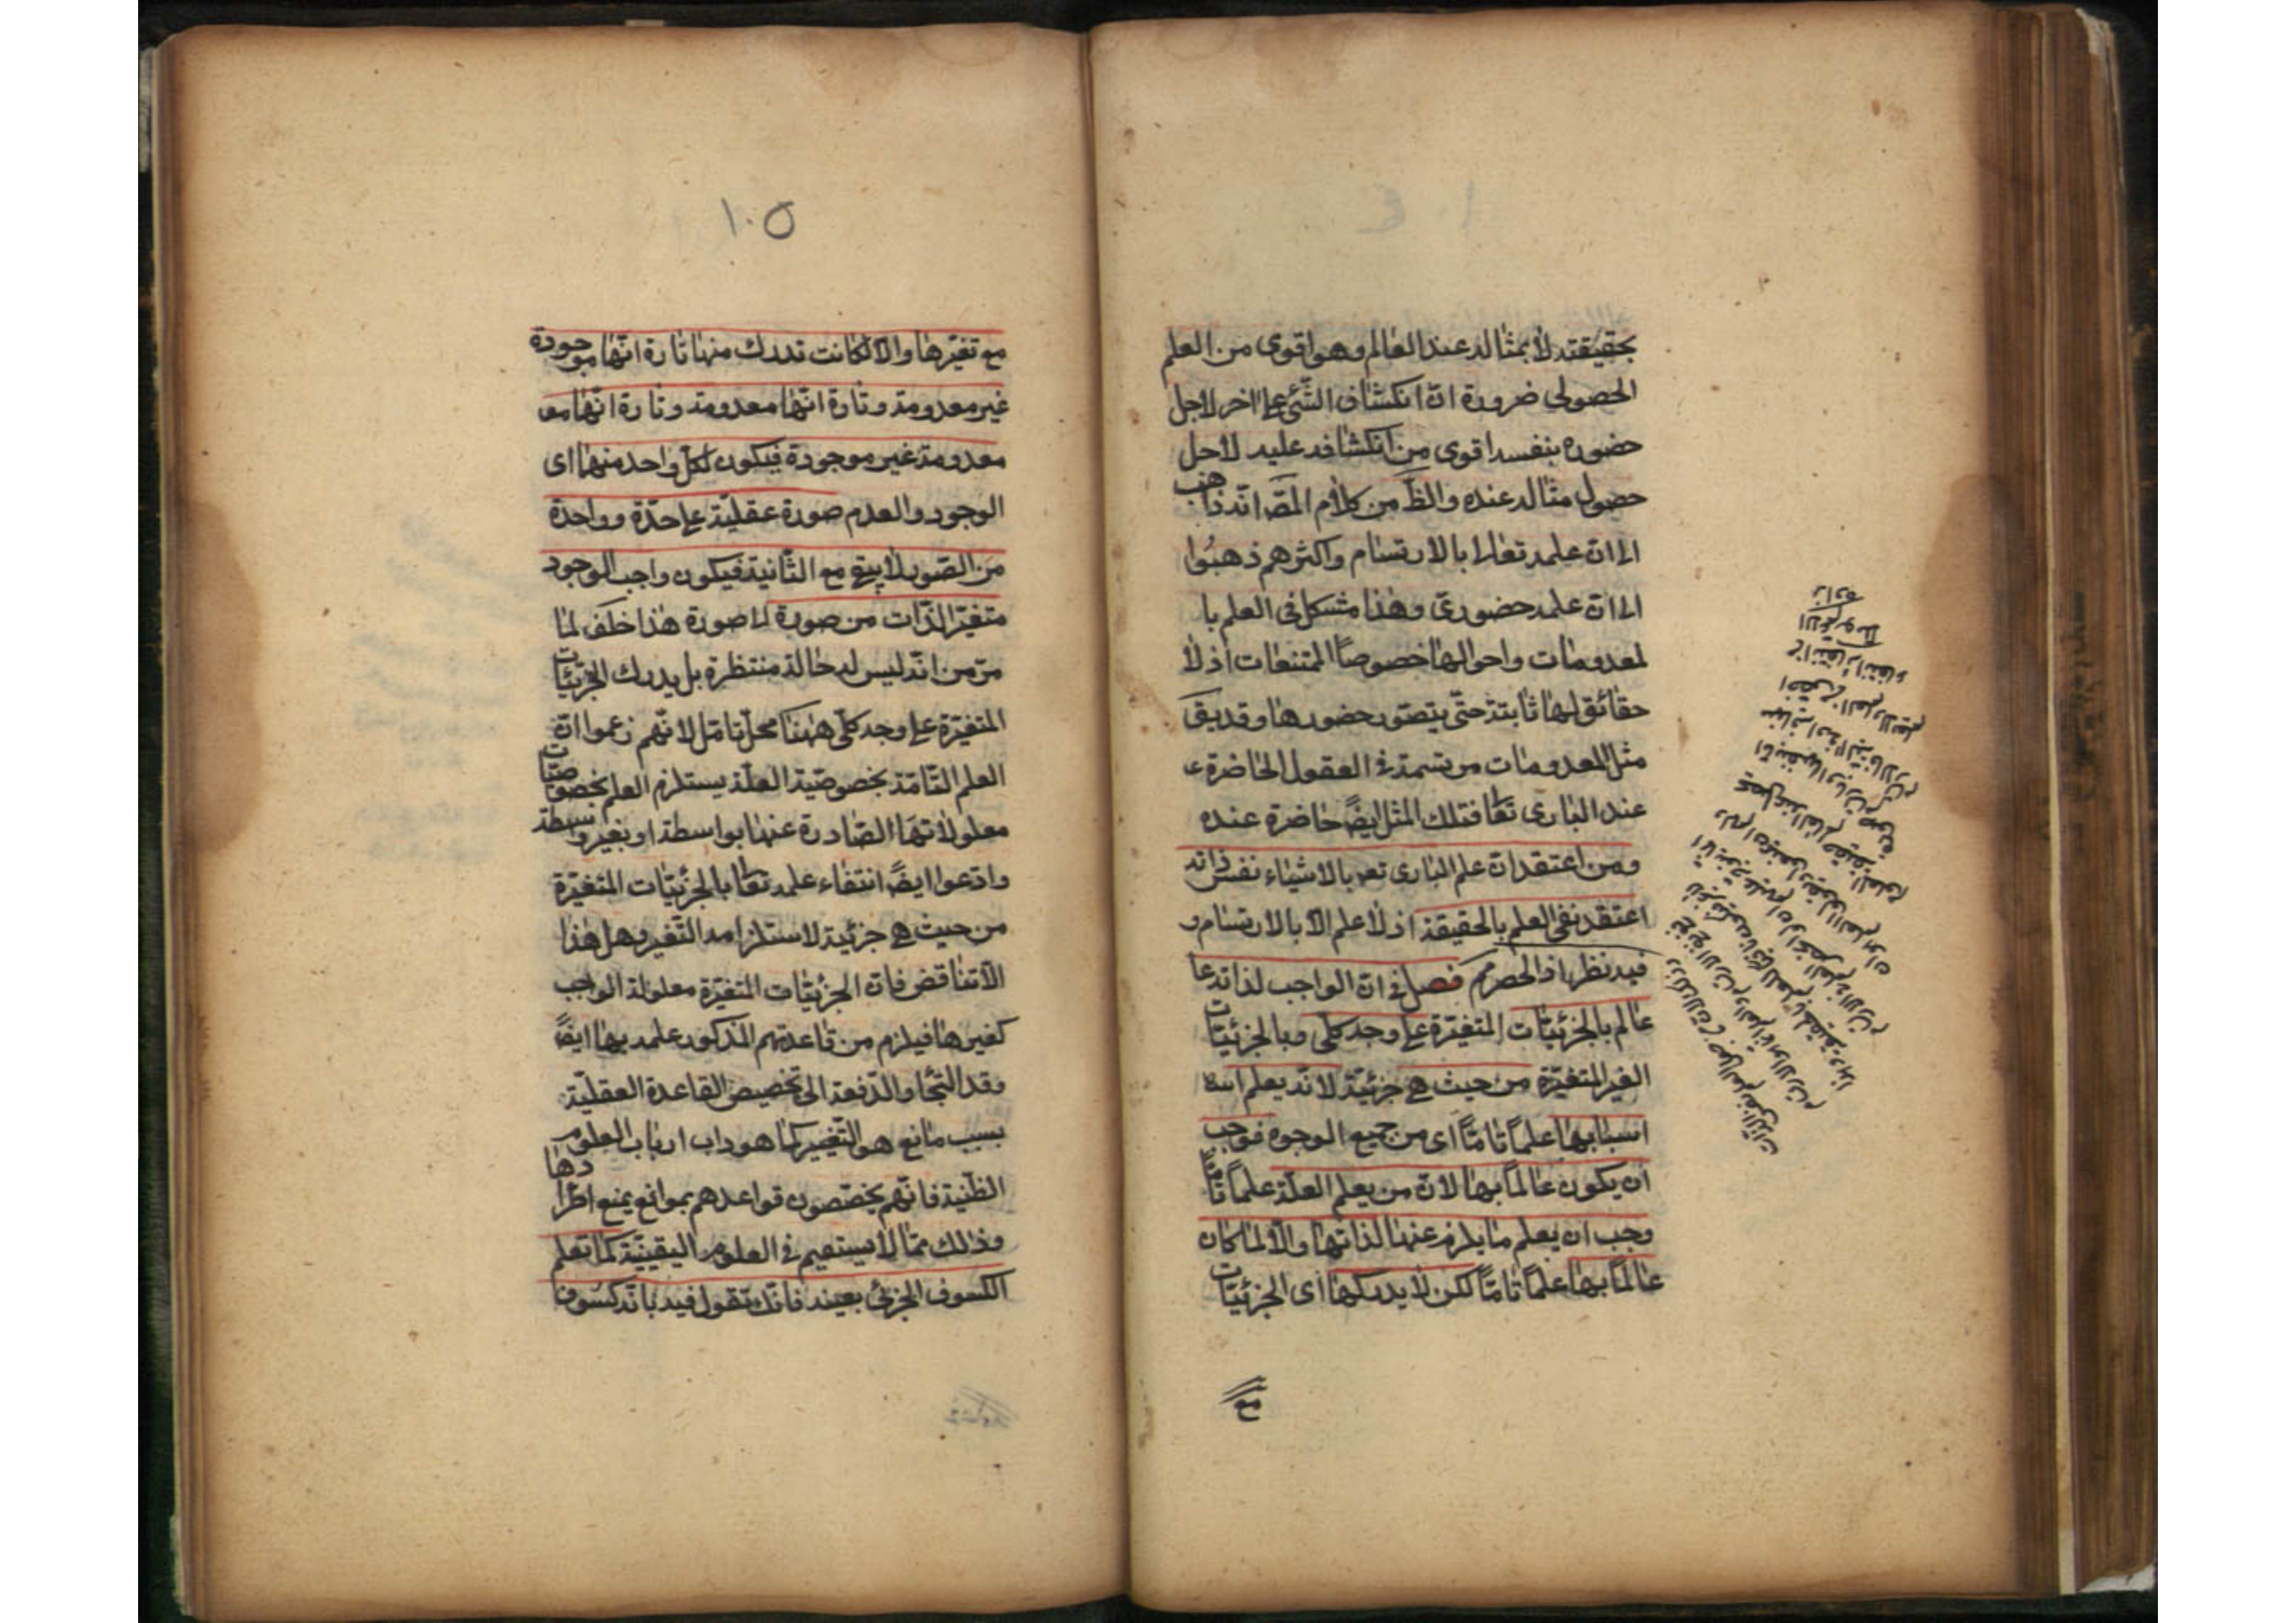 بحقيقته لا بمثاله عند العالم وهو اقوى من العلم
الحصولى ضرورة ان انكشاف الشئ على اخر لاجل
حضوره بنفسه اقوى من انكشافه عليه لاجل
حصول مثاله عنده والظ من كلام المص انه ذاهب
الى ان علمه تعالى بالارتسام واكثرهم ذهبوا
الى ان علمه حضورى وهذا مشكل فى العلم با
لمعدومات واحوالها خصوصاً الممتنعات اذ لا
حقائق لها ثابتة حتى يتصور حضورها وقد يق
مثل المعدومات مرتسمة فى العقول الحاضرة
عند البارى تعا فتلك المثل ايضً حاضرة عنده
ومن اعتقد ان علم البارى تعه بالاشياء نفس ذاته
اعتقد نفى العلم بالحقيقة اذ لا علم الا بالارتسام و
فيه نظر اذ الحصر مم فصل فى ان الواجب لذاته
عالم بالجزئيات المتغيرة على وجه كلى وبالجزئيات
الغير المتغيرة من حيث هى جزئية لانه يعلم
اسبابها علماً تاماً اى من جميع الوجوه فوجب
ان يكون عالماً بها لان من يعلم العلة علماً تاماً
وجب ان يعلم ما يلزم عنها لذاتها والا لما كان
عالماً بها علماً تاماً لكن لا يدركها اى الجزئيات
مع
١٠٥
مع تغيرها والا لكانت تدرك منها تارة انها موجودة
غير معدومة وتارة انها معدومة وتارة انها مع
معدومة غير موجودة فيكون لكل واحد منهما اى
الوجود والعدم صورة عقلية على حدة وواحدة
من الصور لا يبقى مع الثانية فيكون واجب الوجود
متغير الذات من صورة الى صورة هذا خلف لما
مر من انه ليس له حالة منتظرة بل يدرك الجزئيات
المتغيرة على وجه كلى ههنا محل تامل لانهم زعموا ان
العلم التامة بخصوصية العلة يستلزم العلم بخصوصيات
معلولاتها الصادرة عنها بواسطة او بغير وسطة
وادعوا ايضً انتفاء علمه تعا بالجزئيات المتغيرة
من حيث هى جزئية لاستلزامه التغير وهل هذا
الا تناقض فان الجزئيات المتغيرة معلولة الواجب
كغيرها فيلزم من قاعدتهم المذكور علمه بها ايضً
وقد التجاوا لدفعه الى تخصيص القاعدة العقلية
بسبب مانع هو التغيير كما هو داب ارباب العلوم
الظنية فانهم يخصصون قواعدهم بموانع يمنع اطرادها
وذلك مما لا يستقيم فى العلوم اليقينية كما تعلم
الكسوف الجزئى بعينه فانك تقول فيه بانه كسوف